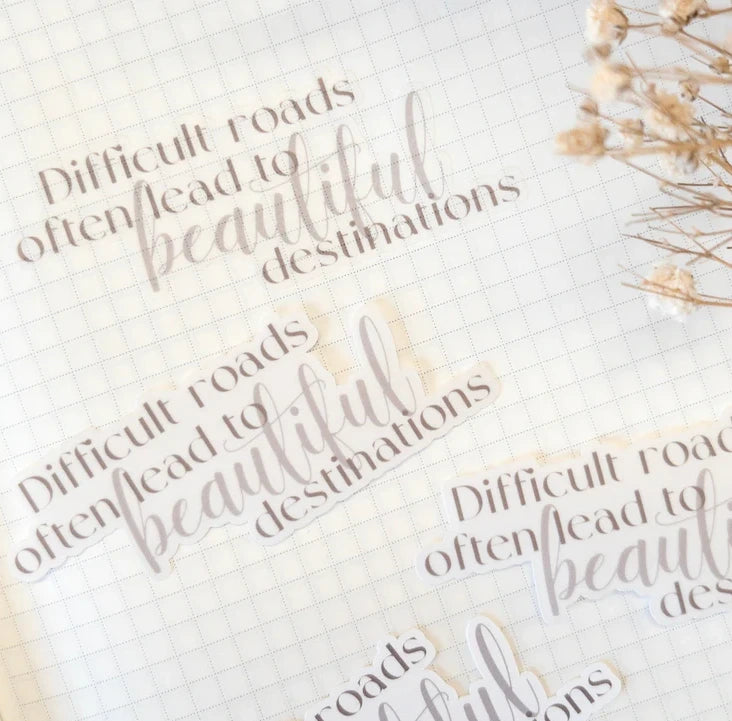 Difficult roads
often lead to
beautiful
destinations
Difficult roads
often lead to
beautiful
destinations
Difficult road
often lead to
beauti
des
roads
ful
ions